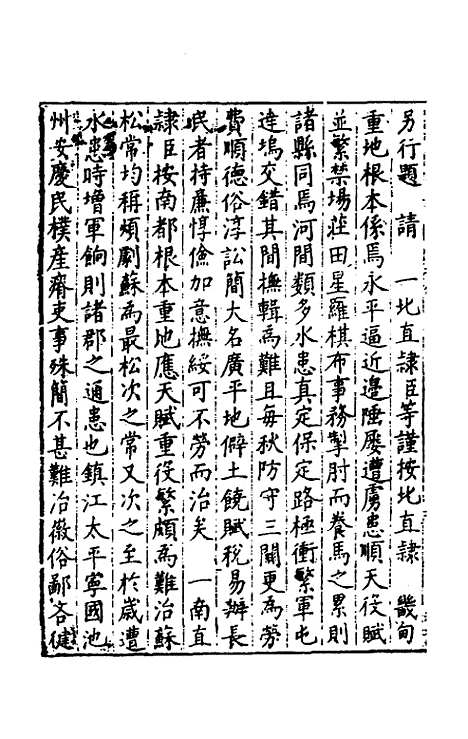 另行題　請　一北直隸臣等謹按北直隸　畿甸
重地根本係焉永平逼近邊陲屡遭虜患順天役賦
並繁禁場莊田星羅棋布事務掣肘而養馬之累則
諸縣同焉河間類多水患真定保定路極衝繁軍屯
達塢交錯其間撫輯為難且每秋防守三關更為勞
費順德俗淳訟簡大名廣平地僻土饒賦稅易辦長
民者持廉惇儉加意撫綏可不勞而治矣　一南直
隸臣按南都根本重地應天賦重役繁頗為難治蘇
松常均稱煩劇蘇為最松次之常又次之至於歲遭
水患時增軍餉則諸郡之通患也鎮江太平寧國池
州安慶民樸產瘠吏事殊簡不甚難治徽俗鄙吝健